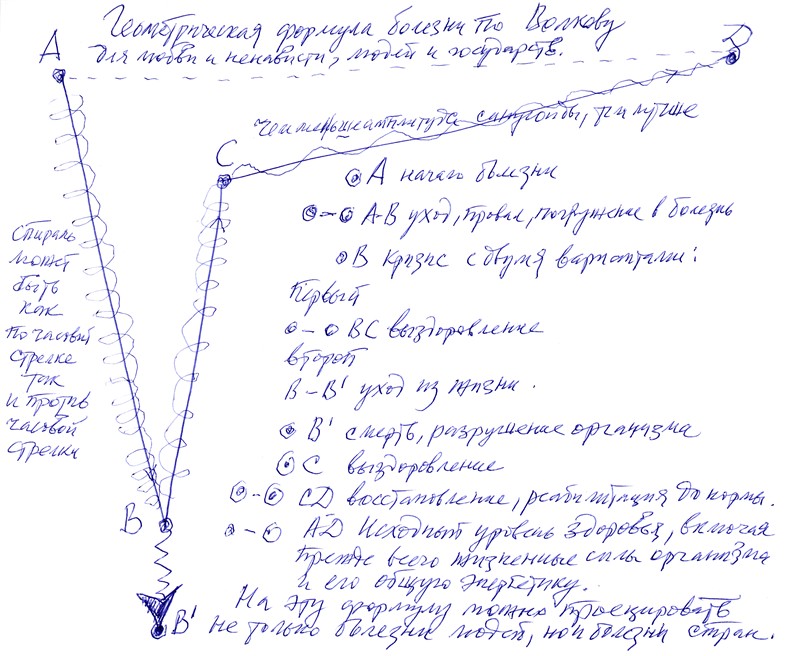 Геометрическая формула болезни по Волкову
для любви и ненависти, людей и государств.
A
D
Чем меньше амплитуда синусоиды, тем лучше
C
A начало болезни
A-B уход, провал, погружение в болезнь
B Кризис с двумя вариантами:
Первый
BC выздоровление
второй
B-B' уход из жизни.
B' смерть, разрушение организма
C выздоровление
CD восстановление, реабилитация до нормы.
A-D Исходный уровень здоровья, включая
прежде всего жизненные силы организма
и его общую энергетику.
На эту формулу можно проецировать
не только болезни людей, но и болезни стран.
Спираль
может
быть
как
по часовой
стрелке
так
и против
часовой
стрелки
B
B'